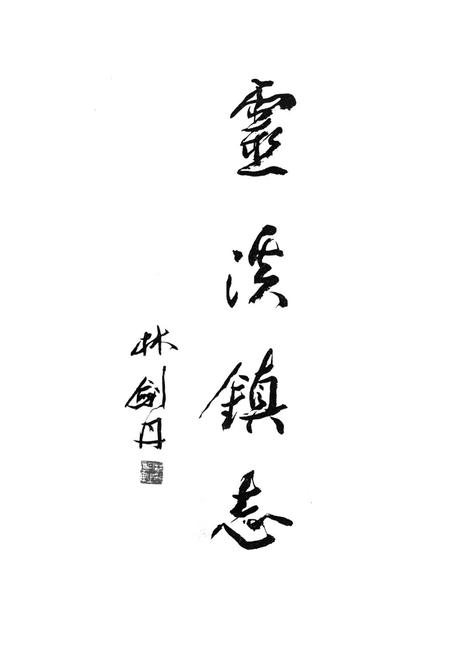 靈溪鎮志
林劍丹